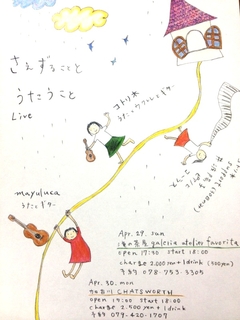 さえずることと
うたうこと
Live
コトリ水
うた、ウクレレ、ギター
mayuluca
うたとギター
Apr. 29. sun
galeria atelier favorita
open 17:30 start 18:00
charge 2.000 yen + 1 drink (500 yen)
予約 078-753-3305
Apr. 30. mon
CHATSWORTH
open 17:30 start 18:00
charge 2.500 yen + 1 drink
予約 079-420-1707